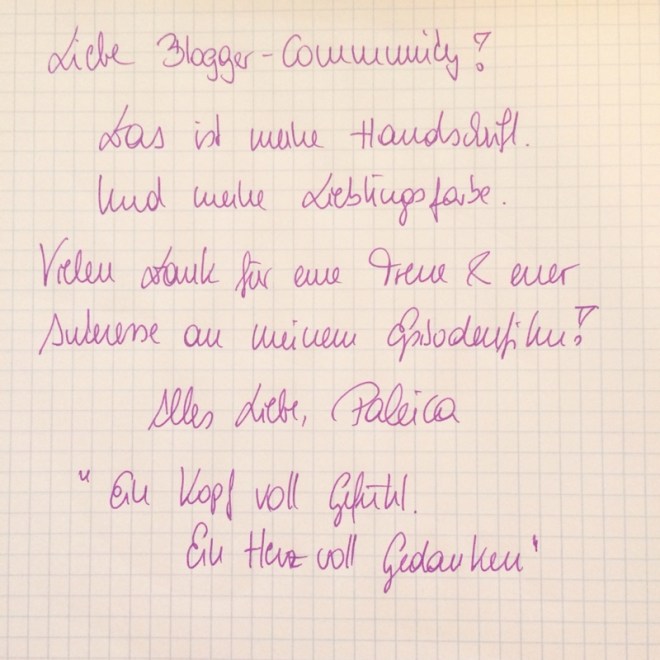 Liebe Blogger-Community!
Das ist meine Handschrift.
Und meine Lieblingsfarbe.
Vielen Dank für eure Treue & euer
Interesse an meinem Episodenfilm!
Alles Liebe, Paleica
"Ein Kopf voll Gefühl.
Ein Herz voll Gedanken"